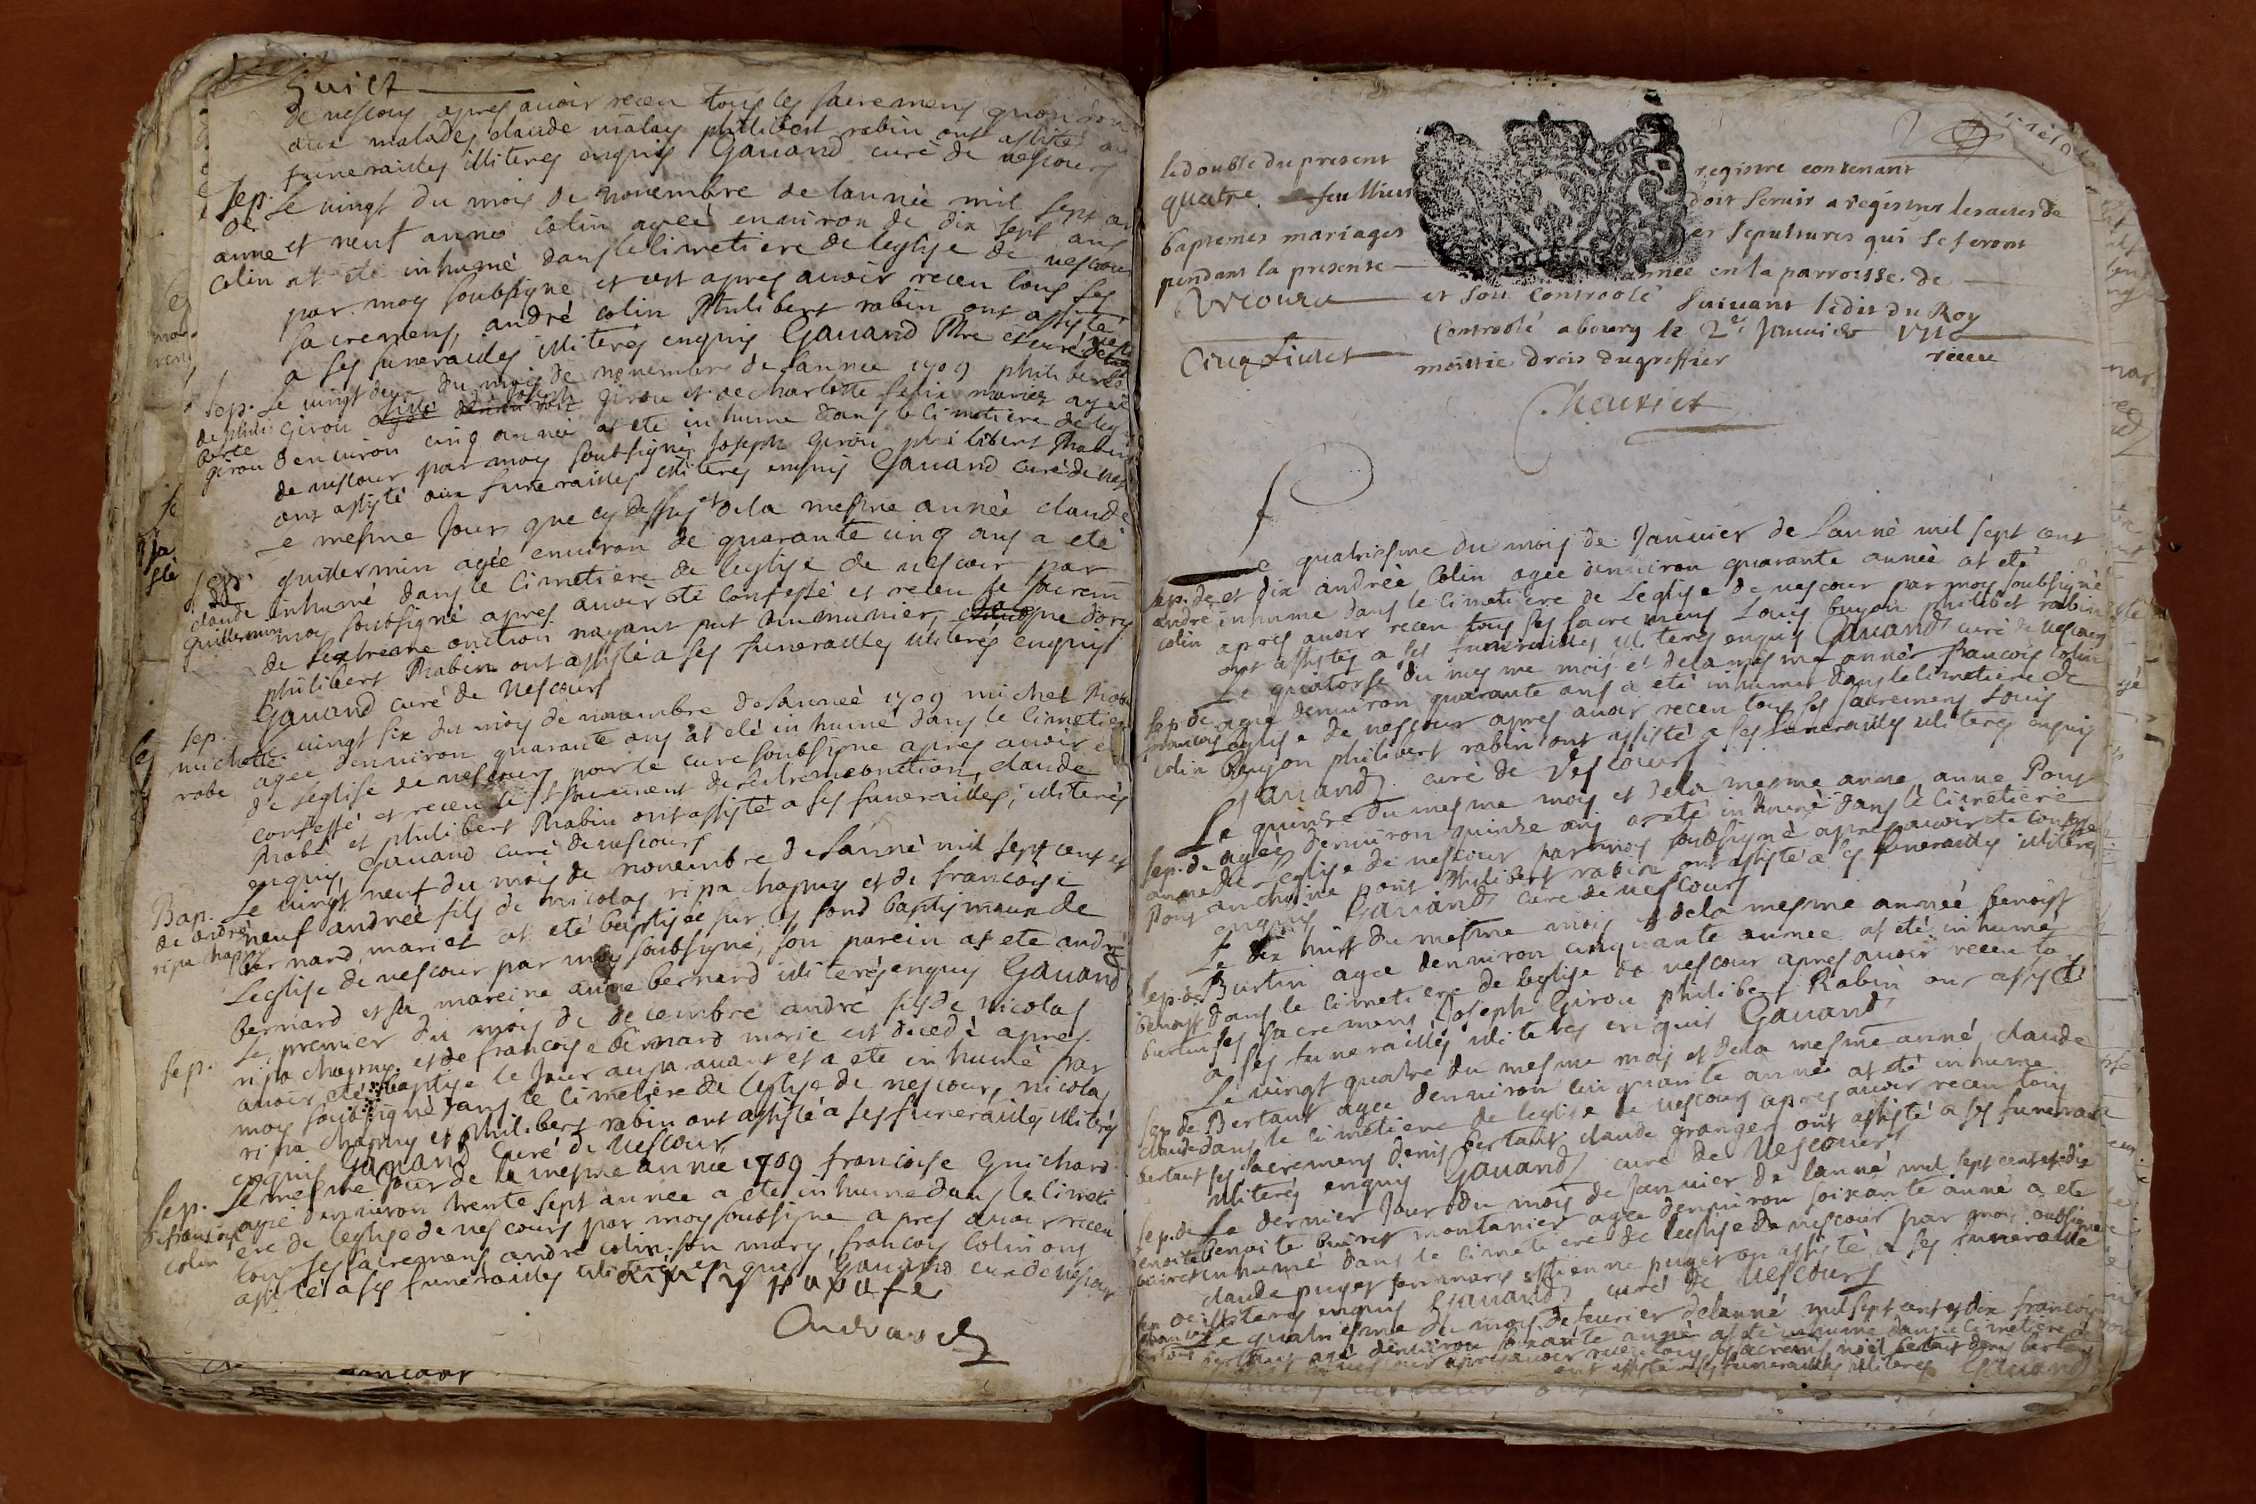 huict
de vescours apres avoir receu tous les sacremens quon don
aux malades claude vialay philibert rabin ont assité au
funerailles illiteres enquis Gavand curé de vescours
Sep. Le vingt du mois de novembre de lannée mil sept ce
de anne et neuf anne Colin ageé environ de dix sept ans
colin at eté inhumé dans le cimetiere de leglise de vescour
par moy soubsigné et cest apres avoir receu tous ses
sacremens, andré colin Philibert rabin ont assisté
a ses funerailles illiterés enquis Gavand Ptre et curé de
Sep. Le vingt deux du mois de novembre de lannee 1709 philiberte
de phili Girou fille de joseph girou et de charlotte felix mariez ageé
berte denviron cinq anneé at eté inhumé dans le cimetiere de leg
girou de vescour par moy soubsigné, Joseph Girou philibert Rabin
ont assisté aux funerailles illiteres enquis Gavand curé de ves
Le mesme Jour que cy dessus et de la mesme anneé claude
Sep. guillermin ageé environ de quarante cinq ans a eté
de claude inhumé dans le cimetiere de leglise de vescour par
guillermin moy soubsigné apres avoir eté confessé et receu le sacrem
de lextreme onction nayant put communier,
philibert Rabin ont assisté a ses funerailles illiteres enquis
Gavand curé de vescours
sep. vingt six du mois de novembre de lanneé 1709 michel Robe
michelle ageé denviron quarante ans at eté inhumé dans le cimetier
robe de leglise de vescours par le curé soubsigné apres avoir eté
confessé et receu le st sacrement de lextremeonction, claude
Robé et philibert Rabin ont assisté a ses funerailles, illiterés
enquis, Gavand curé de vescours
Bap. Le vingt neuf du mois de novembre de lanné mil sept cens et
de andré neuf andreé fils de nicolas ripa chapuy et de francoise
ripa chapuy bernard, mariez at eté baptiseé sur les fond baptismaux de
Leglise de vescour par moy soubsigné, son parein at ete andré
bernard et sa mareine anne bernard illiterés enquis Gavand
Le premier du mois de decembre andré fils de nicolas
sep. ripa chapuy et de francoise bernard marie est decedé apres
avoir eté baptisé le Jour auparavant et a ete inhumé par
moy soubsigné dans le cimetiere de leglise de vescours, nicolas
ripa chapuy et philibert rabin ont assisté a ses funerailles illiterés
enquis Gavand curé de vescour
Sep. Le mesme Jour de la mesme anneé 1709 francoise Guichard
de francoise ageé denviron trente sept anneé a ete inhumé dans le cimeti
colin ere de leglise de vescours par moy soubsigné apres avoir receu
tous ses sacremens andre colin son mary, francois Colin ont
assité a ses funerailles illiteré enquis Gavand curé de vescour
le double du present registre contenant
quatre feulliets doit servir a registrer les actes de
baptemes mariages et sepultures qui se feront
pendant la presente année en la parroisse de
Vescours et soit controolé suivant ledit du Roy
Controolé a bourg le 2e Janvier 1710
Cinq Livres moittie droit du greffier receu
Le quatriesme du mois de Janvier de Lanné mil sept cent
sep. de et dix andreé Colin ageé denviron quarante anneé at eté
andré inhumé dans le cimetiere de Leglise de vescour par moy soubsigné
colin apres avoir receu tous ses sacremens Louis buyon philibert rabin
ont assistés a ses funerailles illiteres enquis Gavand curé de vescours
Le quatorse du mesme mois et de la mesme anneé francois colin
sep. de ageé denviron quarante ans a eté inhumé dans le cimetiere de
francois Leglise de vescour apres avoir receu tous ses sacremens Louis
colin Buyon philibert rabin ont assisté a ses funerailles illiteres enquis
Gavand curé de vescours
Le quinse du mesme mois et de la mesme anneé anne Pont
sep. de ageé denviron quinse ans at eté inhumé dans le cimetiere
anne de leglise de vescour par moy soubsigné apres avoir eté confessé
Pont anthoine pont Philibert rabin ont assisté a ses funerailles illiteres
enquis Gavand curé de vescours
Le dix huit du mesme mois et de la mesme anneé benoist
sep. de Burtin ageé denviron cinquante anneé at eté inhumé
benoist dans le cimetiere de leglise de vescour apres avoir receu to
burtin ses sacremens Joseph Girou philibert Rabin ont assisté
a ses funerailles illiteres enquis Gavand
Le vingt quatre du mesme mois et de la mesme anné claude
sep. de Bertaut ageé denviron cinquante anneé at eté inhumé
claude dans le cimetiere de leglise de vescours apres avoir receu tous
bertaut ses sacremens denis bertaut claude granger ont assisté a ses funerail
illiterés enquis Gavand curé de vescours
sep. de Le dernier Jour du mois de Janvier de lanné mil sept cent et dix
benoite Benoite buiret montanier ageé denviron soixante anné a ete
buiret inhumé dans le cimetiere de leglise de vescour par moy soubsigné
claude puget son mary estienne puget on assisté a ses funeraille
illiteres enquis Gavand curé de vescours
Le quatriesme du mois de fevrier de lanné mil sept cent et dix francois
bertaut agé denviron soixante anné at eté inhumé dans le cimetiere
apres avoir receu tous ses sacremens noel bertaut denis bertaut
ont assisté a ses funerailles illiteres Gavand